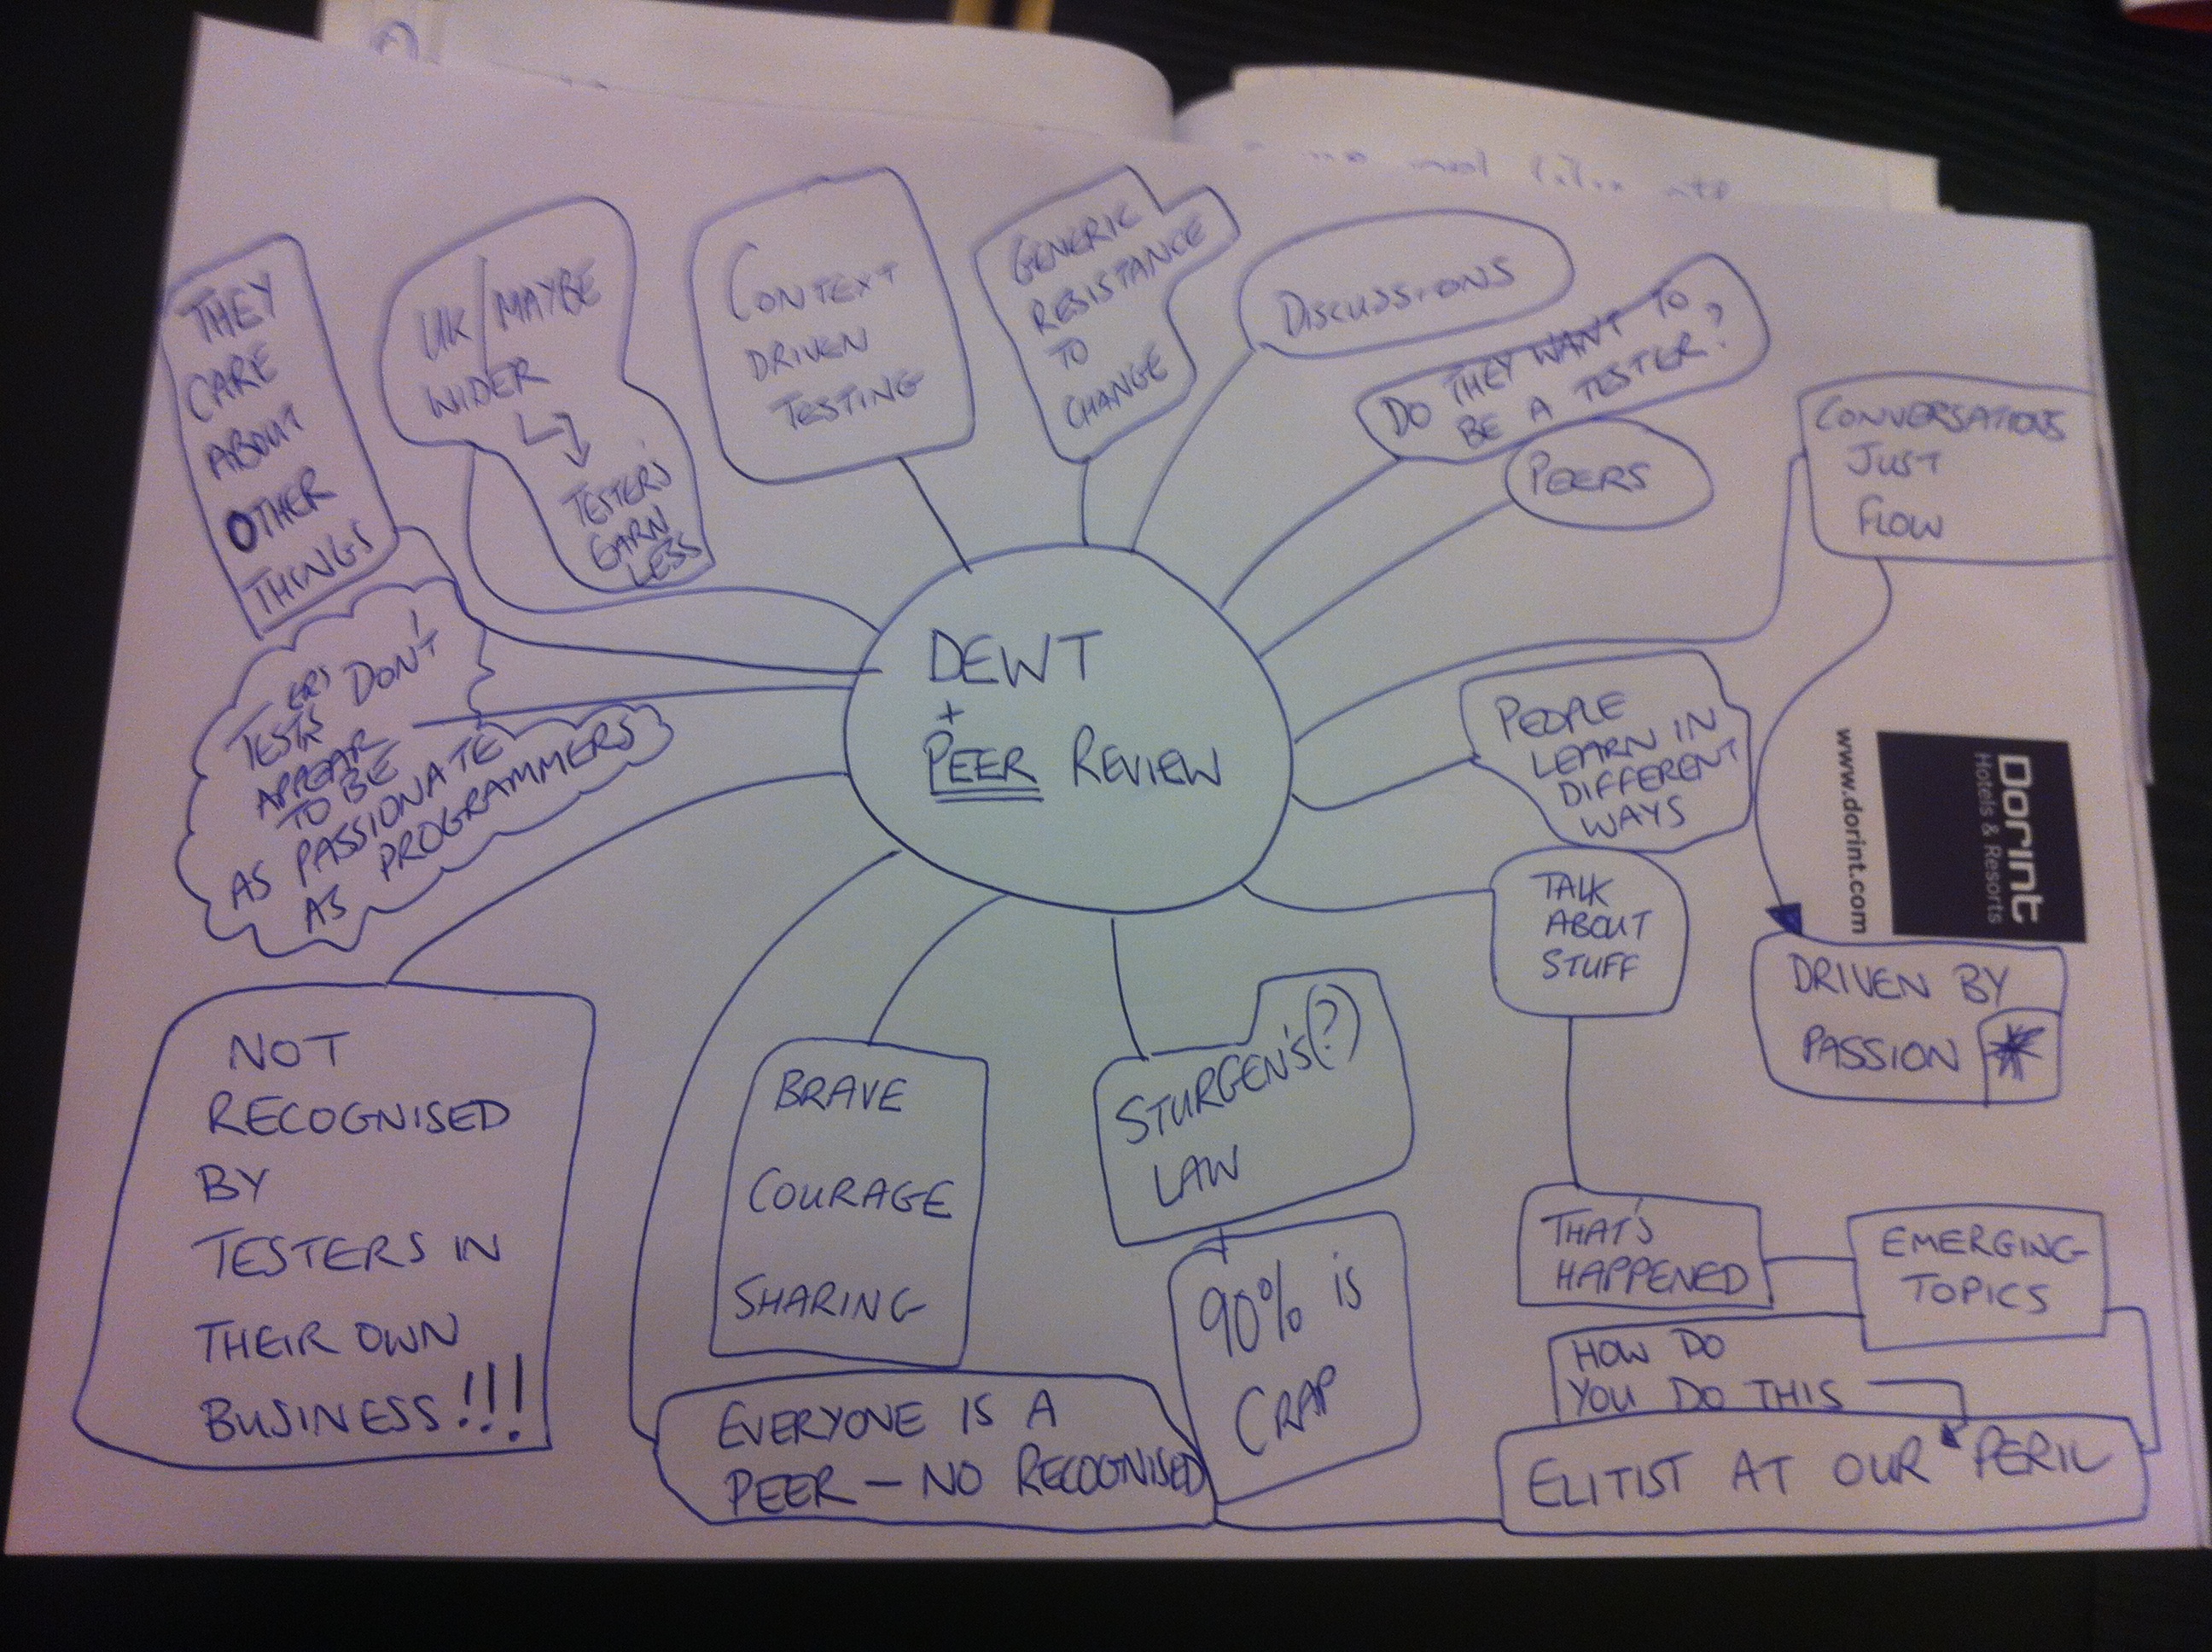 THEY
CARE
ABOUT
OTHER
THINGS
UK/MAYBE
WIDER
TESTERS
EARN
LESS
CONTEXT
DRIVEN
TESTING
GENERIC
RESISTANCE
TO
CHANGE
DISCUSSIONS
DO THEY WANT TO
BE A TESTER?
PEERS
CONVERSATIONS
JUST
FLOW
DEWT
+
PEER REVIEW
TESTERS DON'T
APPEAR
TO BE
AS PASSIONATE
AS PROGRAMMERS
PEOPLE
LEARN IN
DIFFERENT
WAYS
Dorint
Hotels & Resorts
www.dorint.com
TALK
ABOUT
STUFF
DRIVEN BY
PASSION
NOT
RECOGNISED
BY
TESTERS IN
THEIR OWN
BUSINESS!!!
BRAVE
COURAGE
SHARING
STURGEN'S(?)
LAW
90% is
CRAP
THAT'S
HAPPENED
EMERGING
TOPICS
HOW DO
YOU DO THIS
EVERYONE IS A
PEER - NO RECOGNISED
ELITIST AT OUR PERIL